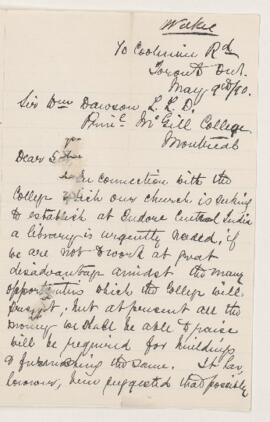 Wilkie
70 Coolmine Rd
Toronto Ont.
May 9th/90.
Sir Wm Dawson L.L.D.
Prinl. McGill College
Montreal
Dear Sir
In connection with the
College which our church is seeking
to establish at Indore Central India
a library is urgently needed, if
we are not to work at great
disadvantage amidst the many
opportunities which the College will
present, but at present all the
money we shall be able to raise
will be required for buildings
& furnishing the same. It has,
however, been suggested that possibly